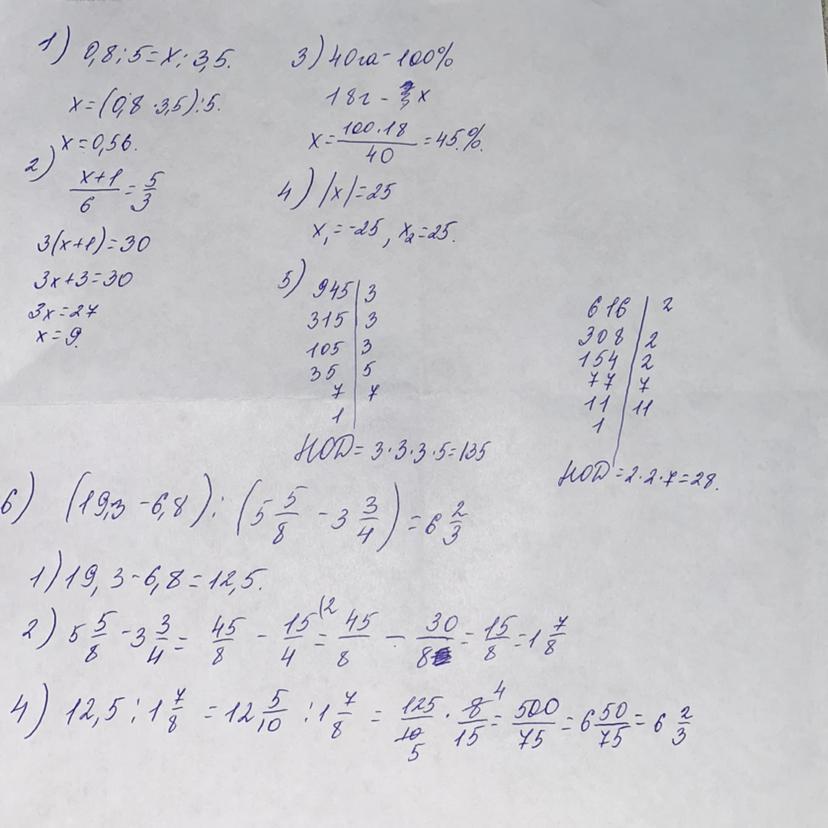 1) 0,8 : 5 = x : 3,5.
x = (0,8 · 3,5) : 5.
x = 0,56.
2)
(x+1)/6 = 5/3
3(x+1) = 30
3x + 3 = 30
3x = 27
x = 9.
3) 40га - 100%
18г - x
x = (100 · 18)/40 = 45%.
4) |x| = 25
x₁ = -25, x₂ = 25.
5)
945 | 3
315 | 3
105 | 3
35 | 5
7 | 7
1 |
НОД = 3·3·3·5 = 135
616 | 2
308 | 2
154 | 2
77 | 7
11 | 11
1 |
НОД = 2·2·7 = 28.
6) (19,3 - 6,8) : (5 5/8 - 3 3/4) = 6 2/3
1) 19,3 - 6,8 = 12,5.
2) 5 5/8 - 3 3/4 = 45/8 - 15/4 (2 = 45/8 - 30/8 = 15/8 = 1 7/8
4) 12,5 : 1 7/8 = 12 5/10 : 1 7/8 = 125/10 5 · 8 4/15 = 500/75 = 6 50/75 = 6 2/3